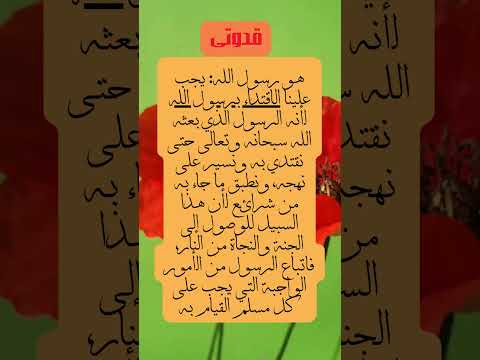 قدوتى
هو رسول الله: يجب
علينا الاقتداء برسول الله
لأنه الرسول الذي بعثه
الله سبحانه وتعالى حتى
نقتدي به ونسير على
نهجه، ونطبق ما جاء به
من شرائع لأن هذا
السبيل للوصول إلى
الجنة والنجاة من النار،
فاتباع الرسول من الأمور
الواجبة التي يجب على
كل مسلم القيام به